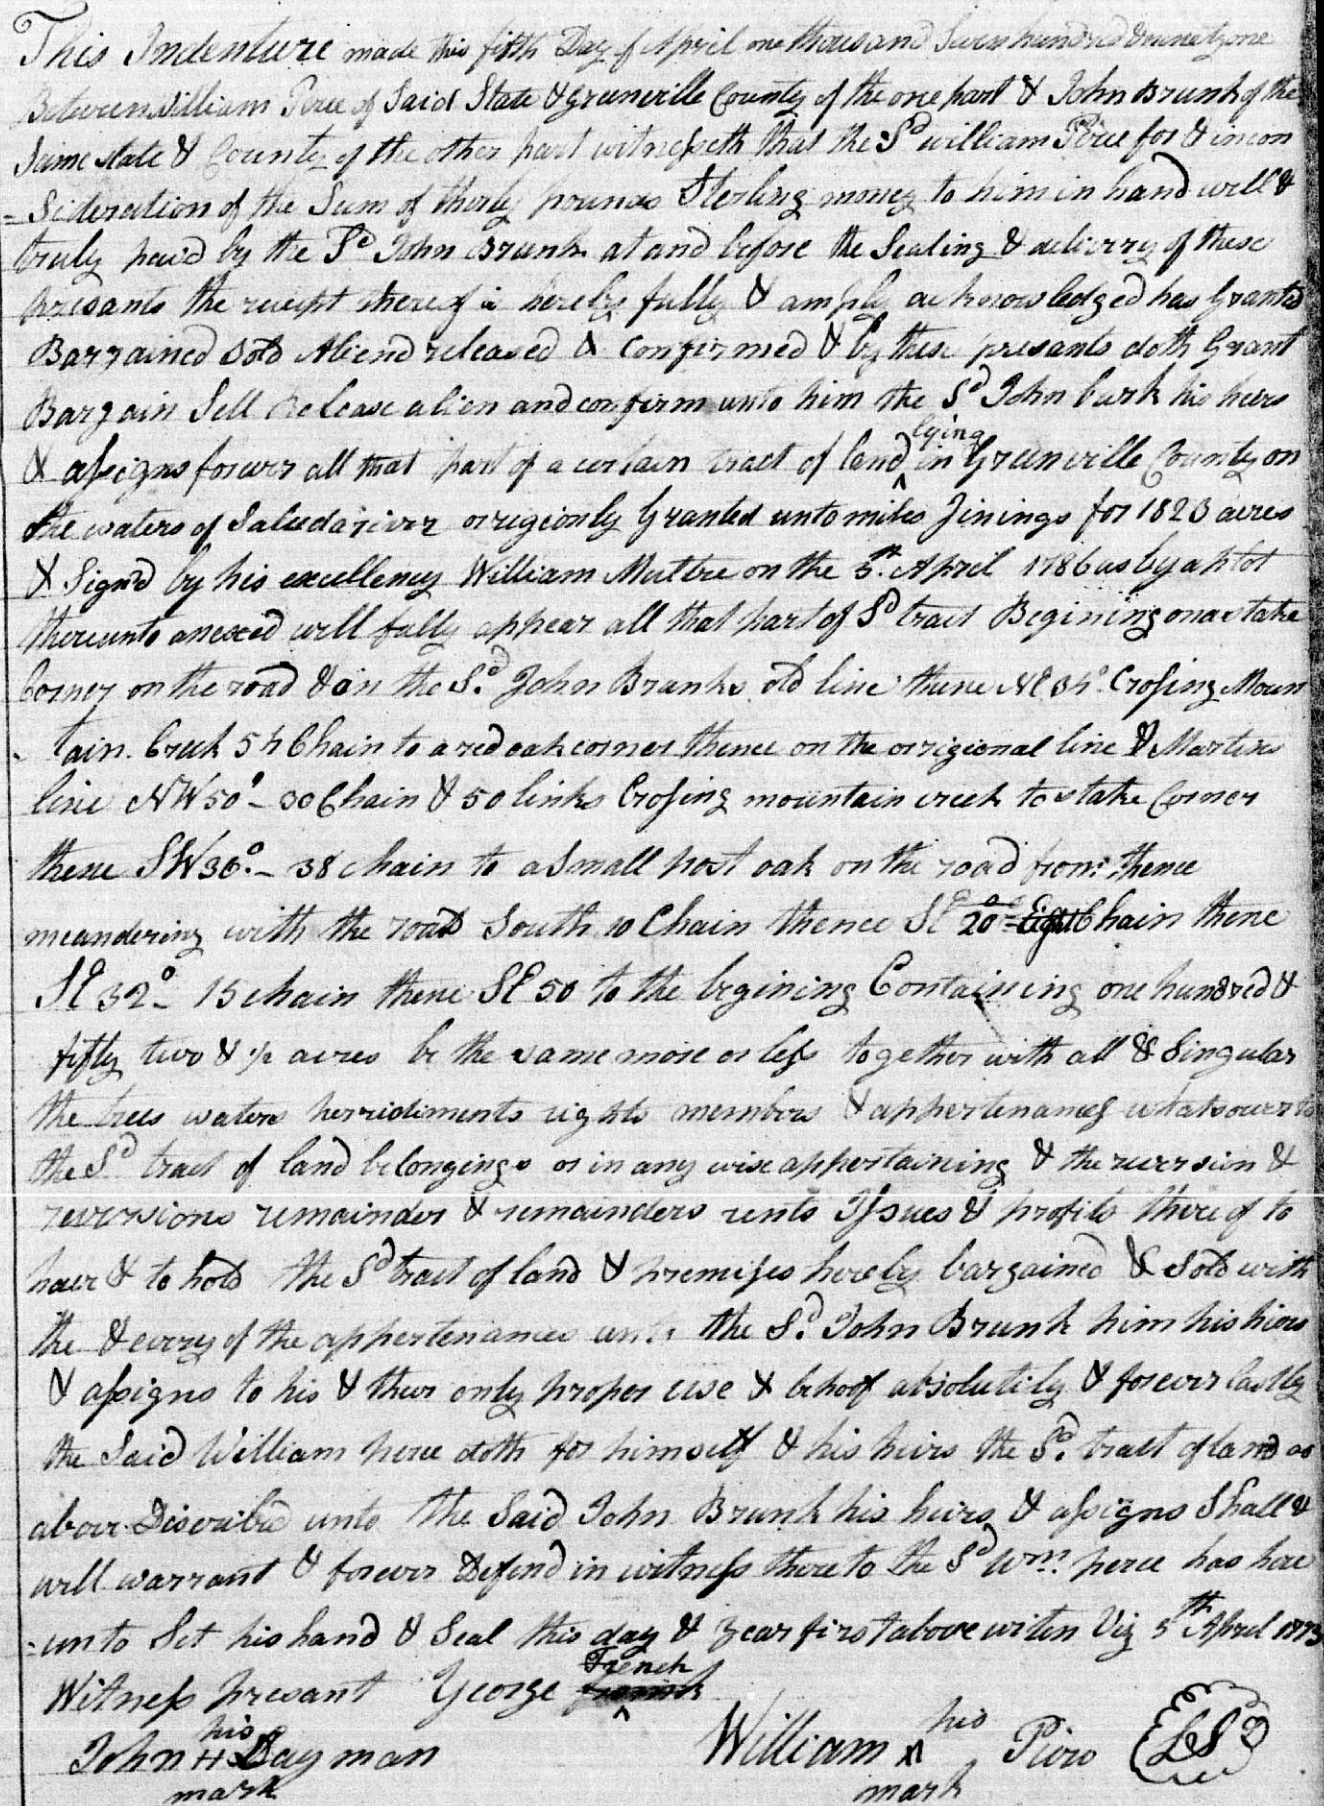 This Indenture made this fifth Day of April one thousand Seven hundred & ninety one
Between William Perce of Said State & Greenville County of the one part & John Brunk of the
Same state & County of the other part witnesseth that the Sd william Peree for & in con
= Sideration of the Sum of thirty pounds Sterling money to him in hand well &
truly paid by the Sd John Brunk at and before the Sealing & delivery of these
presants the receipt thereof is hereby fully & amply acknowledged has Granted
Barrained Sold Aliend released & Confirmed & by these presants doth Grant
Bargain Sell Release alien and confirm unto him the Sd John burk his heirs
& assigns forever all that part of a certain tract of land ^lying in Greenville County on
the waters of Saluda river orrigionly Granted unto miles Jinings for 1823 acres
& Signd by his excellency William Multree on the 3rd April 1786 as by a plot
thereunto anexed will fully appear all that part of Sd tract Begining on a stake
Corner on the road & on the Sd John Brunks old line thence NE 34° Crossing Moun
tain Creek 54 Chain to a red oak corner thence on the orrigional line & Martins
line NW 50° - 30 Chain & 50 links Crossing mountain creek to stake Corner
thence SW 36° - 38 chain to a Small post oak on the road from thence
meandering with the road South 10 Chain thence SE 20° Chain thence
SE 32° - 15 chain thence SE 50 to the begining Containing one hundred &
fifty two & 1/2 acres be the same more or less together with all & Singular
the trees waters herridiments rights members & appertenances whatsoever to
the Sd tract of land belongings or in any wise appertaining & the reversion &
reversions remainder & remainders rents Issues & profits thereof to
have & to hold the Sd tract of land & premises hereby bargained & Sold with
the & every of the appertenances unto the Sd John Brunk him his hiers
& assigns to his & their only proper use & behoof absolutily & forever lastly
the Said William perce doth for himself & his heirs the Sd tract of land as
above Discribed unto the Said John Brunk his heirs & assigns Shall &
will warrant & forever Defend in witness there to the Sd Wm. perce has here
= unto Set his hand & Seal this day & year first above witen Viz 5th April 179
Witness presant George French
John his H Dayman
mark
William his Pirce LS
mark